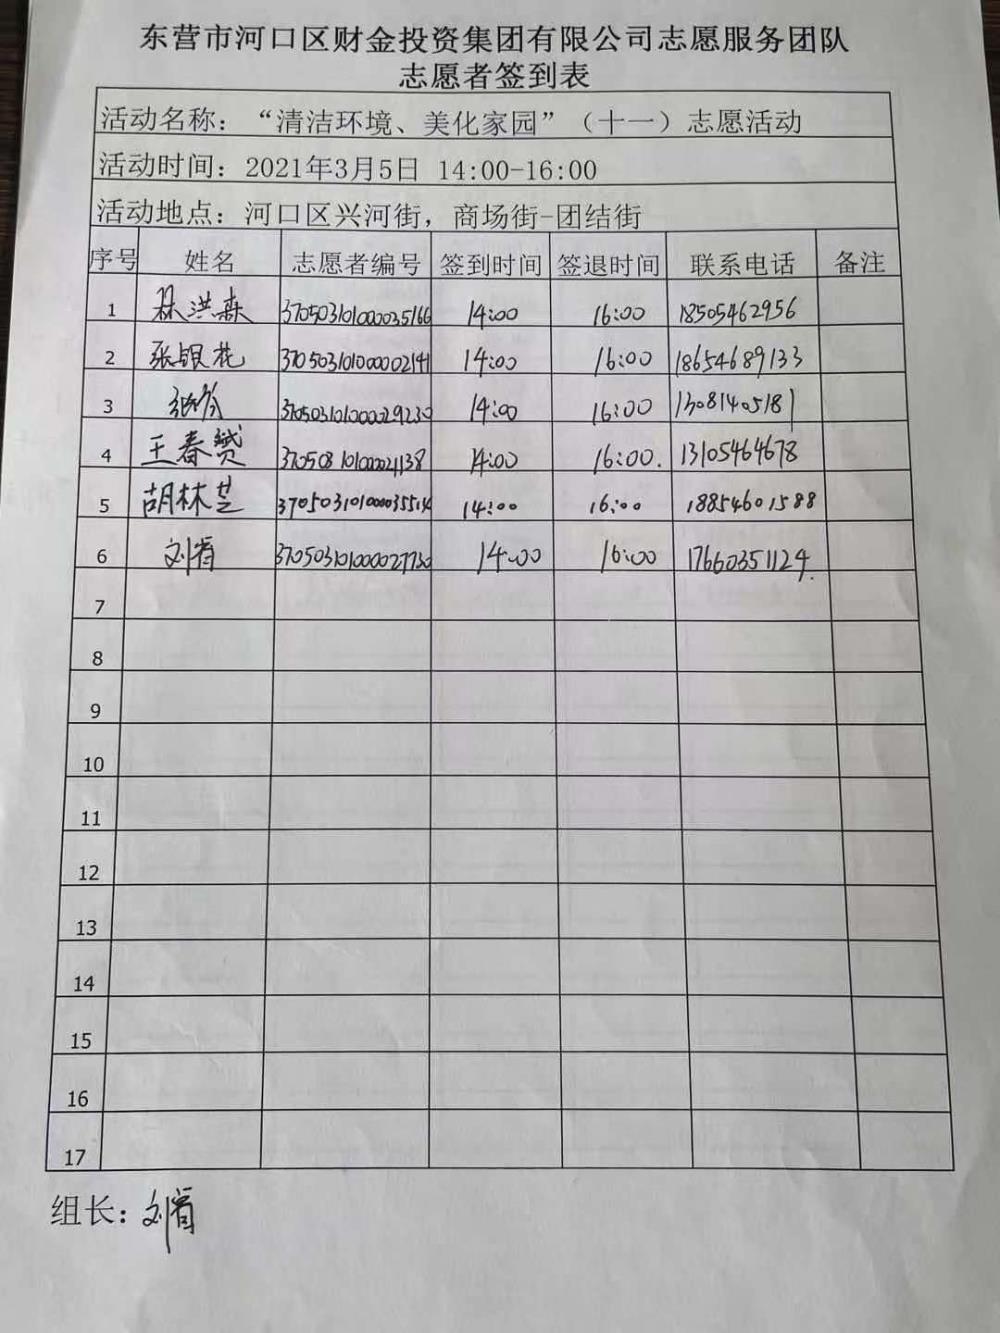 东营市河口区财金投资集团有限公司志愿服务团队
志愿者签到表
活动名称：“清洁环境、美化家园”（十一）志愿活动
活动时间：2021年3月5日 14:00-16:00
活动地点：河口区兴河街，商场街-团结街
序号 姓名 志愿者编号 签到时间 签退时间 联系电话 备注
1 洪森 370503101000035166 14:00 16:00 18505462956
2 张银花 370503101000002141 14:00 16:00 18654689133
3 370503101000029230 14:00 16:00 13081405181
4 王春赟 14:00 16:00. 13105464678
5 胡林芝 14:00 16:00 18854601588
6 刘 370503101000027730 14:00 16:00 17660351124.
7
8
9
10
11
12
13
14
15
16
17
组长：刘